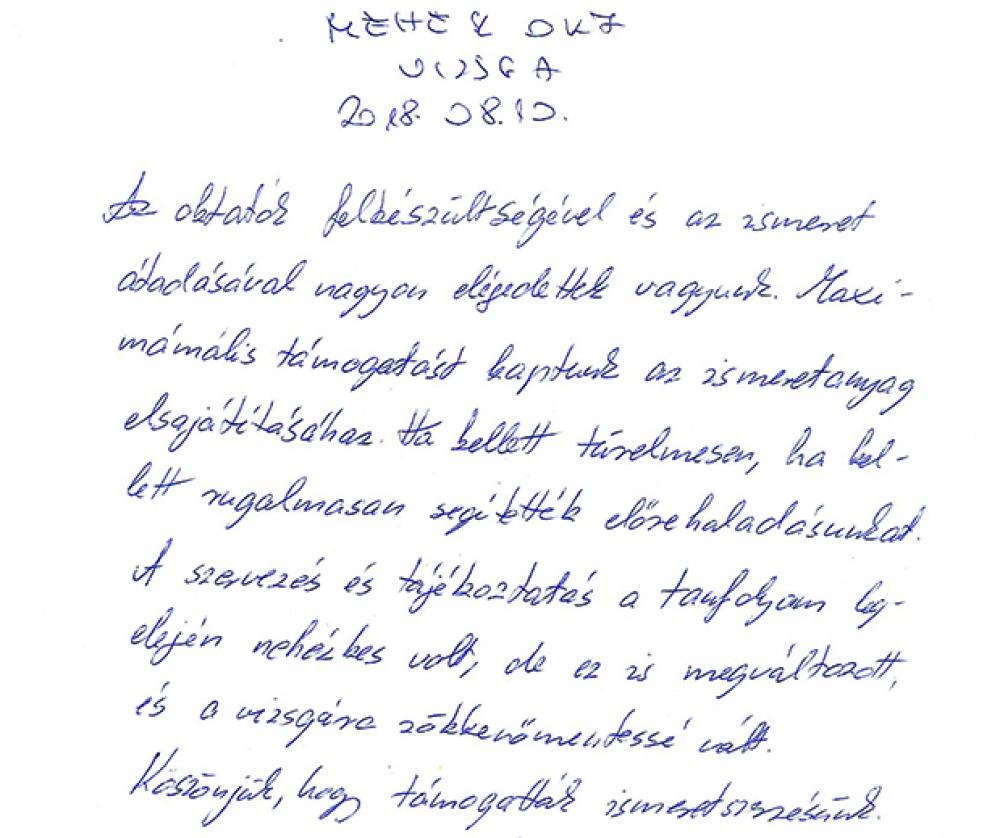 MÉHÉSZ OKJ
VIZSGA
2018. 08. 10.
Az oktatók felkészültségével és az ismeret
átadásával nagyon elégedettek vagyunk. Maxi-
mámális támogatást kaptunk az ismeretanyag
elsajátításához. Ha kellett türelmesen, ha kel-
lett rugalmasan segítették előrehaladásunkat.
A szervezés és tájékoztatás a tanfolyam leg-
elején nehézkes volt, de ez is megváltozott,
és a vizsgára zökkenőmentessé vált.
Köszönjük, hogy támogatták ismeretszerzésünk.